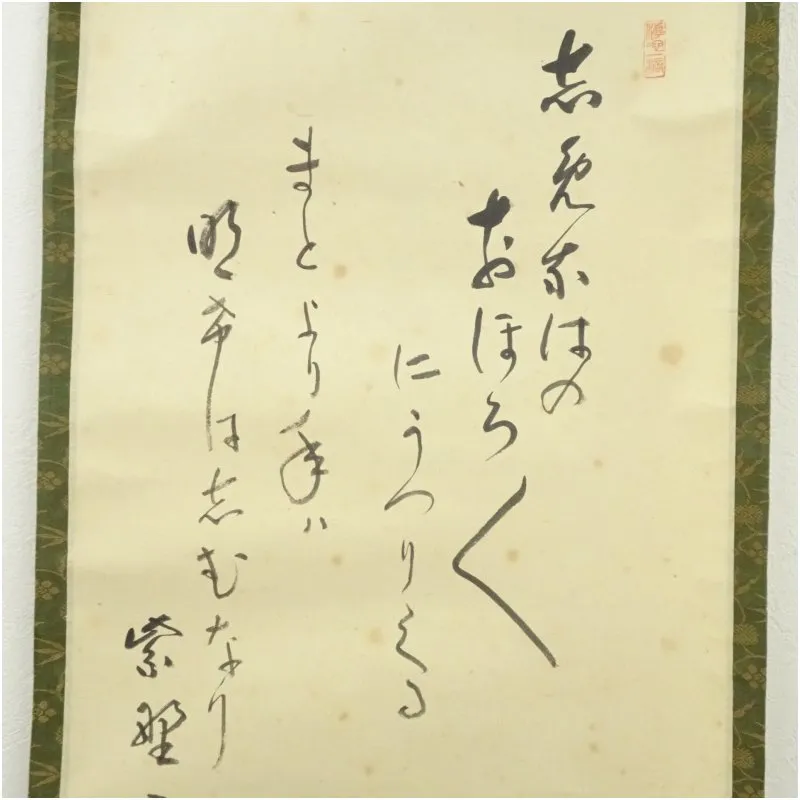 志免奈はの
おほろ〱
にうつり来る
まとより年ハ
明希は志むなり
紫野